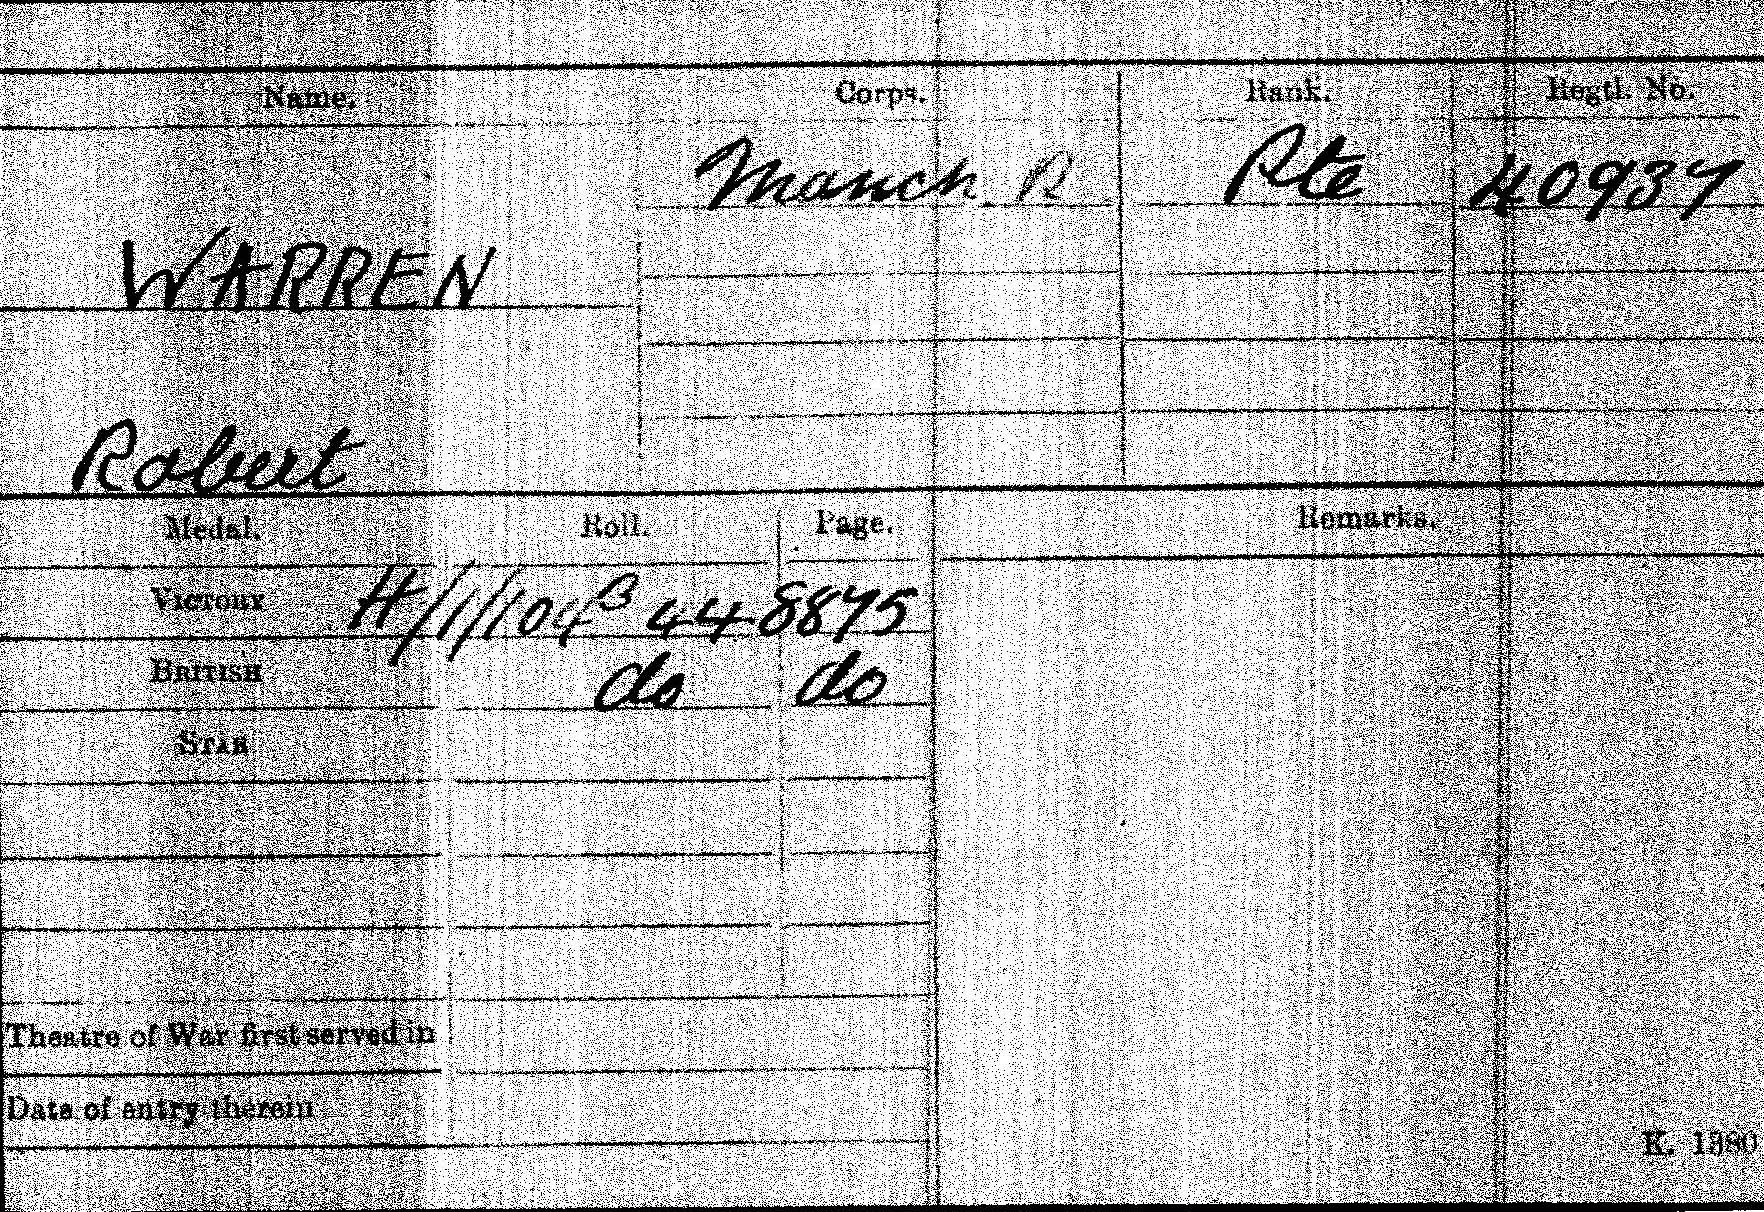 Name. Corps. Rank. Regtl. No.
Manch R Pte 40937
WARREN
Robert
Medal. Roll. Page. Remarks.
VICTORY H/1/104 B 44 8875
BRITISH do do
STAR
Theatre of War first served in
Date of entry therein
K. 1380